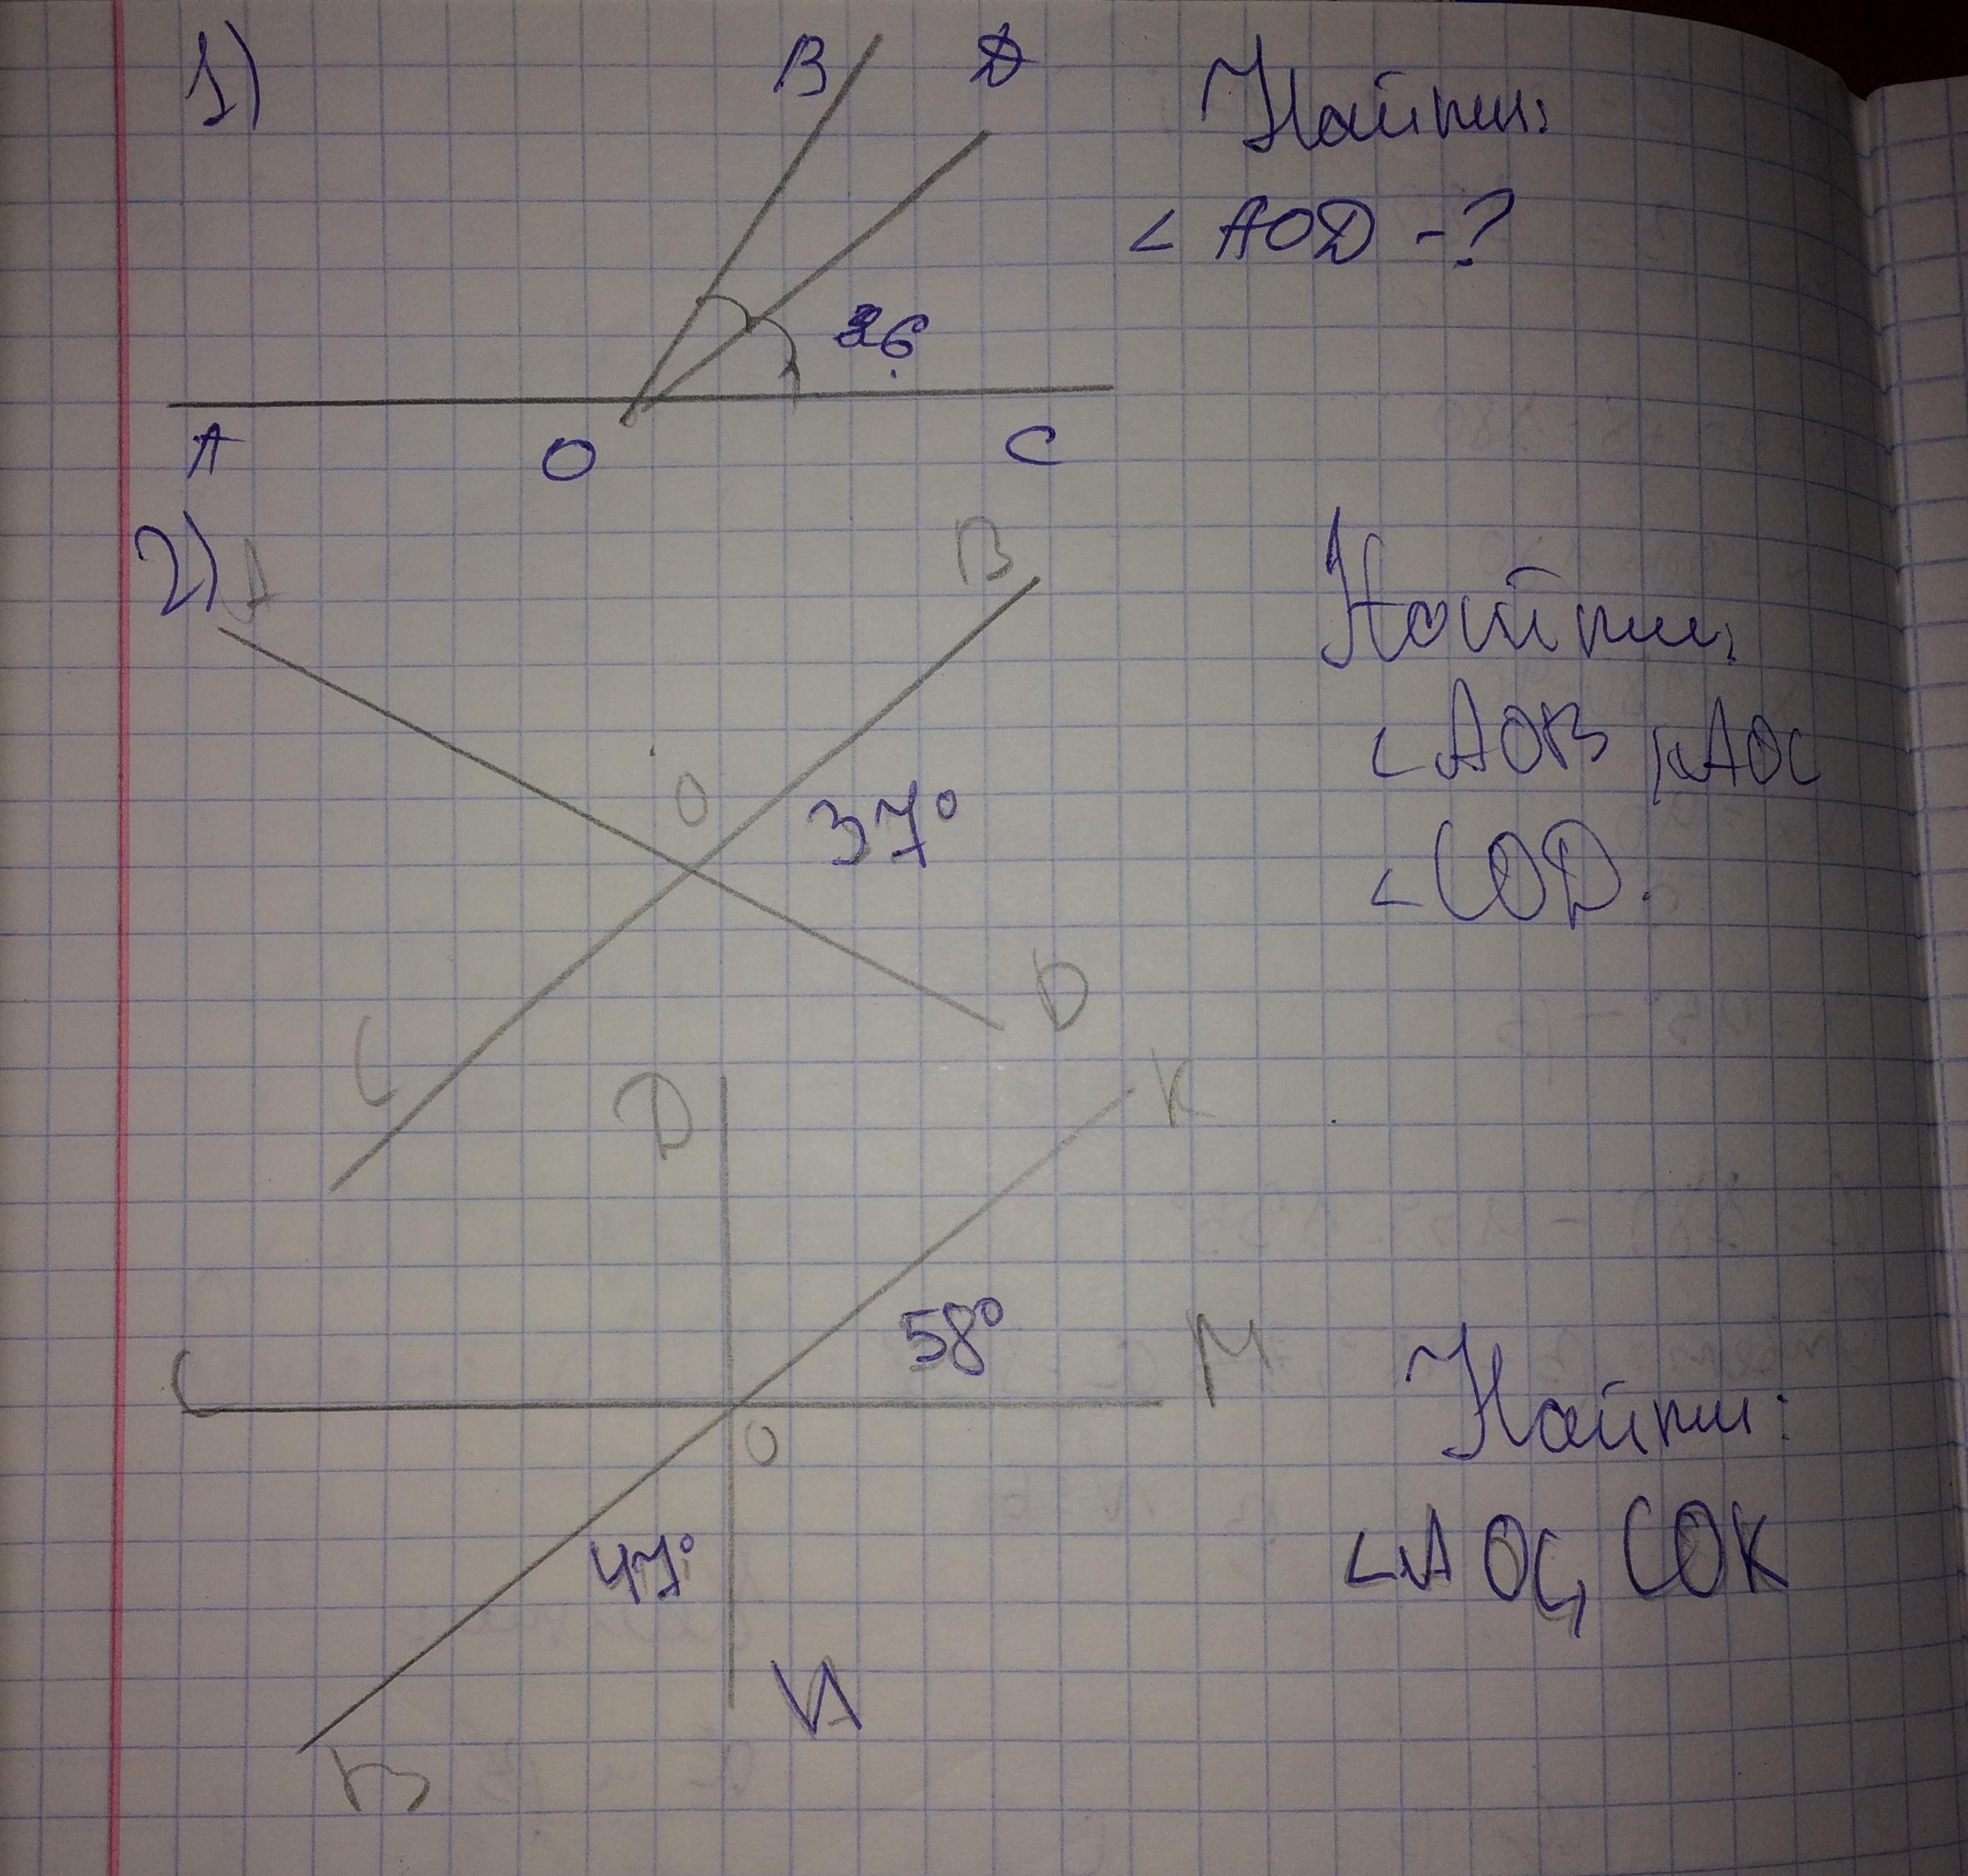 1)
B D
Найти:
< AOD -?
36
A O C
2) A
B
Найти:
< AOB, < AOC
O
37°
< COD.
D
C
D
K
58°
M
C
O
Найти:
< AOC, COK
47°
A
B